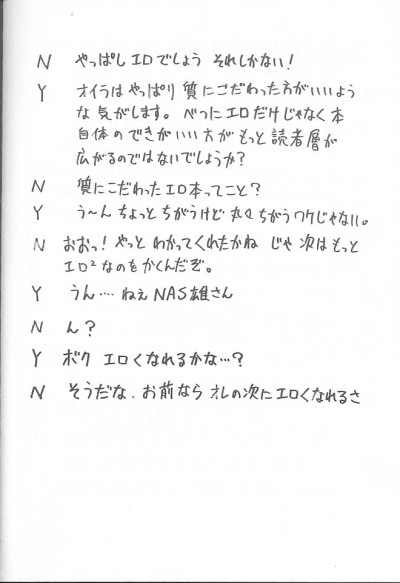 N やっぱしエロでしょう それしかない!
Y オイラはやっぱり質にこだわった方がいいよう
な気がします。べつにエロだけじゃなく本
自体のできがいい方がもっと読者層が
広がるのではないでしょうか?
N 質にこだわったエロ本ってこと?
Y う〜んちょっとちがうけど丸々ちがうワケじゃない。
N おおっ!やっとわかってくれたかね じゃ次はもっと
エロ²なのをかくんだぞ。
Y うん‥‥ねぇNAS雄さん
N ん?
Y ボク エロくなれるかな…?
N そうだな、お前なら オレの次にエロくなれるさ